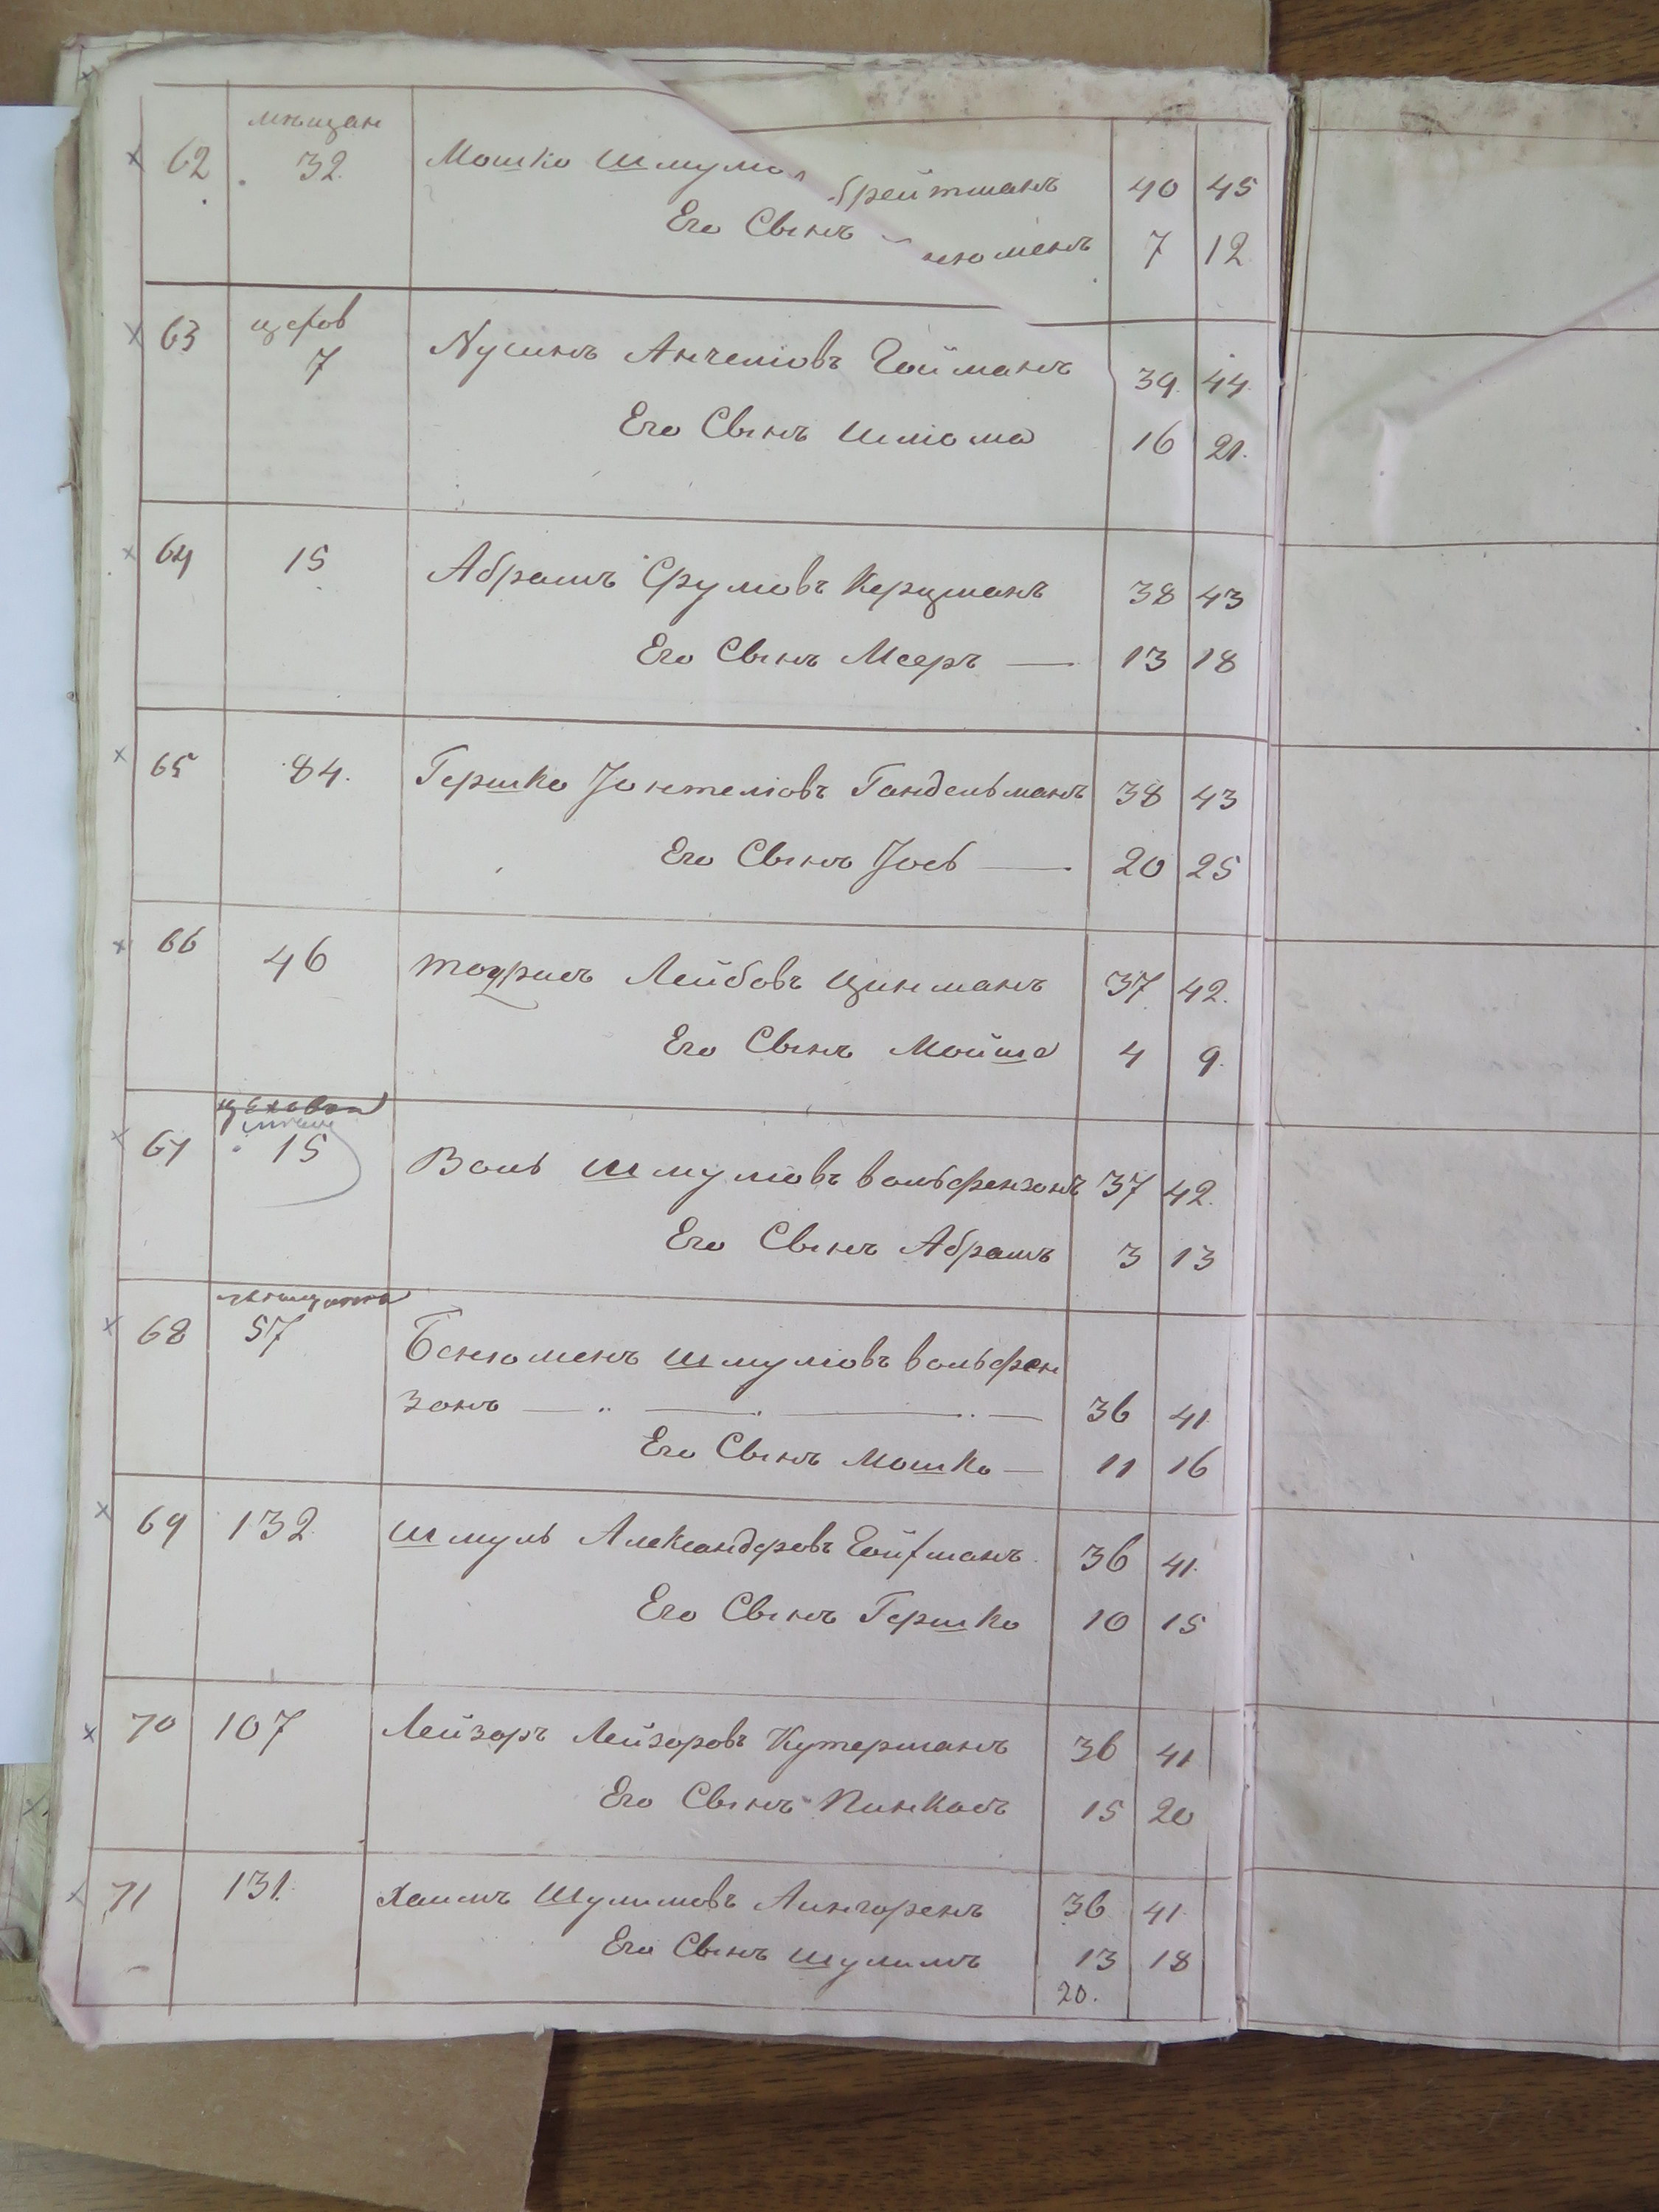 мѣщан
62 32 Мошко Шмулев Брейтманъ 40 45
Его Сынъ нюменъ 7 12
цехов
63 7 Нусинъ Анчеліовъ Гойманъ 39 44
Его Сынъ Шліома 16 21
64 15 Абрамъ Сруліовъ Керцманъ 38 43
Его Сынъ Мееръ — 13 18
65 84. Гершко Іонтеліовъ Гандельманъ 38 43
Его Сынъ Іось — 20 25
66 46 Тодрисъ Лейбовъ Цинманъ 37 42.
Его Сынъ Мойше 4 9.
цеховой
67 15 Воль Шмуліовъ Вольфензонъ 37 42.
Его Сынъ Абрамъ 3 13
68 57 Бенюменъ Шмуліовъ Вольфен
зонъ — 36 41
Его Сынъ Мошко — 11 16
69 132 Шмуль Александровъ Гойфманъ 36 41.
Его Сынъ Гершко 10 15
70 107 Лейзоръ Лейзоровъ Кутерманъ 36 41
Его Сынъ Пинкасъ 15 20
71 131. Хаимъ Шулимовъ Лингоренъ 36 41.
Его Сынъ Шулимъ 13 18
20.